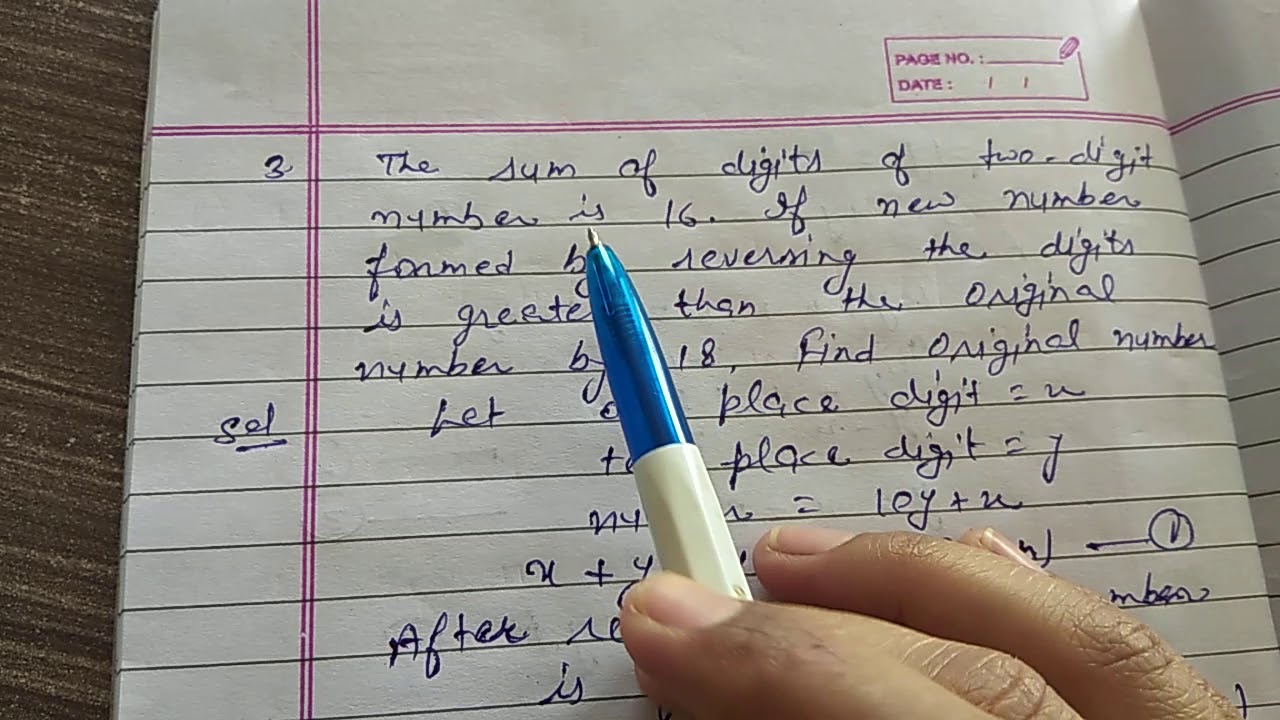 PAGE NO.:
DATE: / /
3 The sum of digits of two-digit
number is 16. If new number
formed by reversing the digits
is greater than the original
number by 18, find original number
Sol Let place digit = x
place digit = y
= 10y + x
x + y 1
mber
After
is